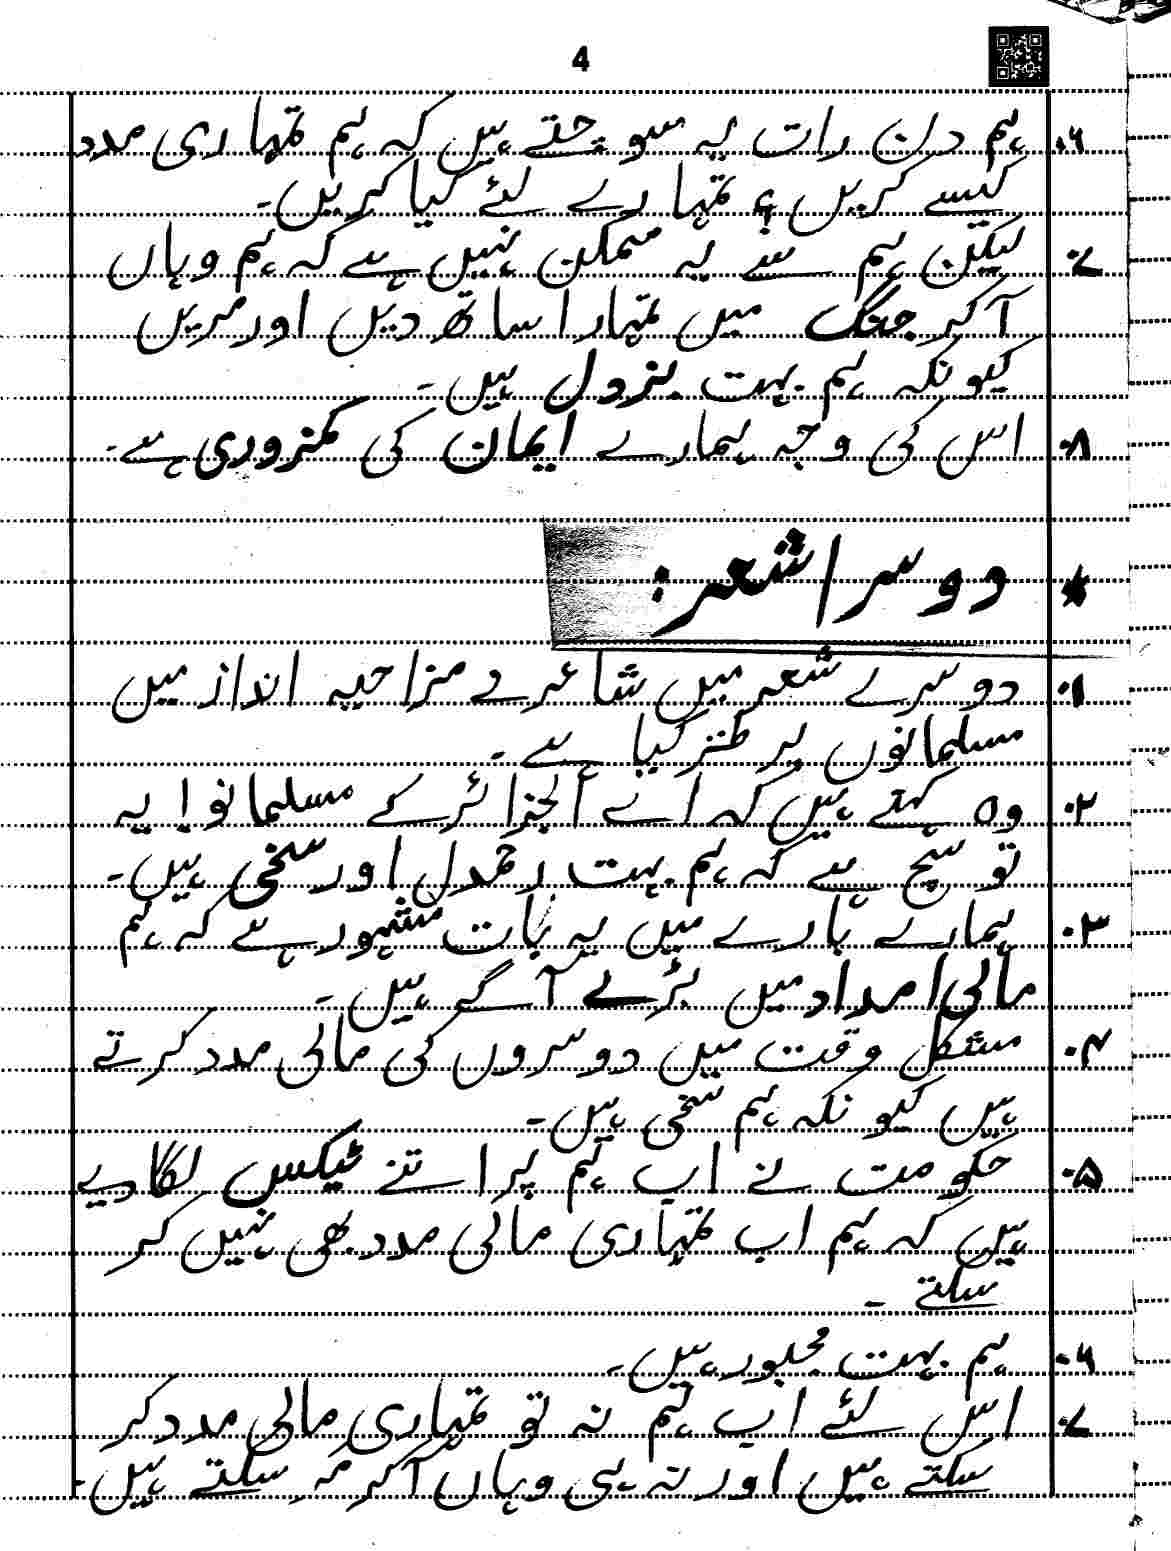 4
۶. ہم دن رات یہ سوچتے ہیں کہ ہم تمہاری مدد
کیسے کریں؟ تمہارے لئے کیا کریں۔
۷. لیکن ہم سے یہ ممکن نہیں ہے کہ ہم وہاں
آکر جنگ میں تمہارا ساتھ دیں اور مریں
کیونکہ ہم بہت بزدل ہیں۔
۸. اس کی وجہ ہمارے ایمان کی کمزوری ہے۔
* دوسرا شعر:
۱. دوسرے شعر میں شاعر نے مزاحیہ انداز میں
مسلمانوں پر طنز کیا ہے۔
۲. وہ کہتے ہیں کہ اے الجزائر کے مسلمانو! یہ
تو سچ ہے کہ ہم بہت رحمدل اور سخی ہیں۔
۳. ہمارے بارے میں یہ بات مشہور ہے کہ ہم
مالی امداد میں بڑے آگے ہیں۔
۴. مشکل وقت میں دوسروں کی مالی مدد کرتے
ہیں کیونکہ ہم سخی ہیں۔
۵. حکومت نے اب ہم پر اتنے ٹیکس لگا دیے
ہیں کہ ہم اب تمہاری مالی مدد بھی نہیں کر
سکتے ۔
۶. ہم بہت مجبور ہیں۔
۷. اس لئے اب ہم نہ تو تمہاری مالی مدد کر
سکتے ہیں اور نہ ہی وہاں آکر مر سکتے ہیں۔